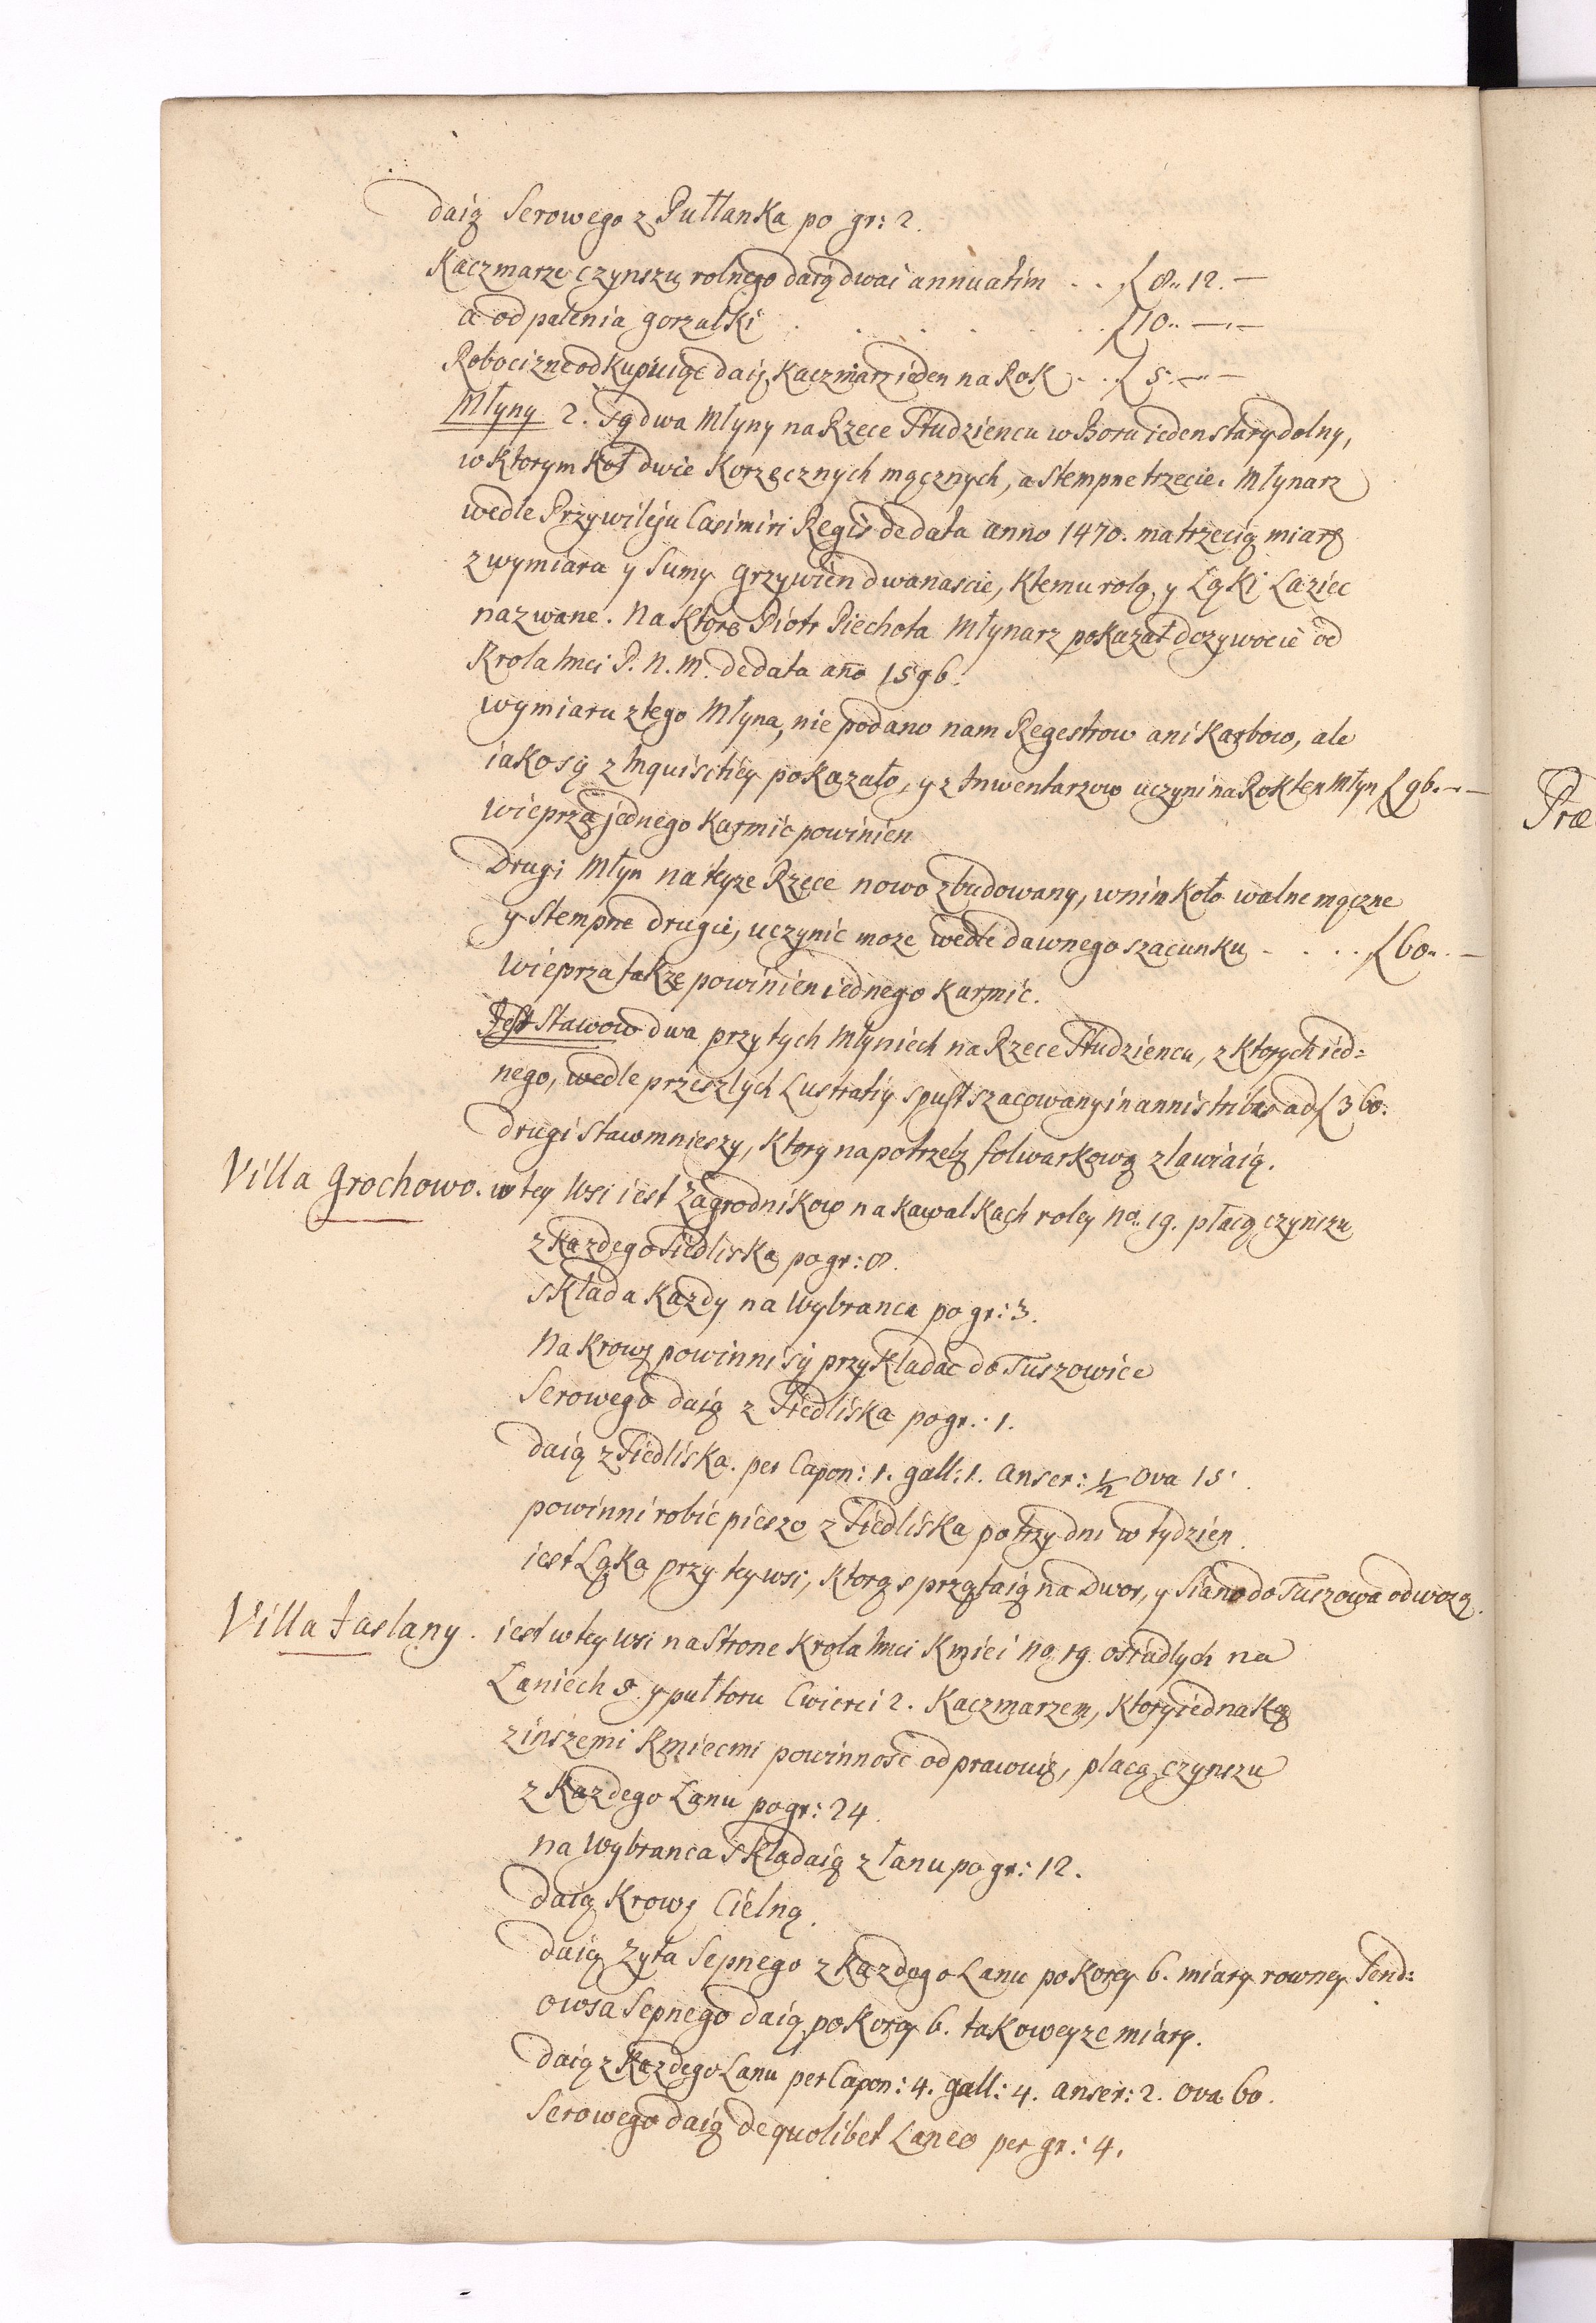 daią Serowego z Pułłanka po gr: 2.
Kaczmarze czynszu rolnego daią dwai annuatim . . ſ 8.. 12. —
a od palenia gorzałki . . . . . . ſ 10.. —.—
Robociznę odkupuiąc daią Kaczmarz ieden na Rok . . ſ 5.—.—
Młyny 2. Są dwa Młyny na Rzece Studziencu w Boru ieden stary dolny,
w ktorym koł dwie Korzęcznych mącznych, a stempne trzecie. Młynarz
wedle Przywileju Casimiri Regis de data anno 1470. ma trzecią miarę
z wymiara y Sumy grzywien dwanascie, ktemu rolą y Łąki Laziec
nazwane. Na ktore Piotr Piechota Młynarz pokazał dozywocie od
Krola Imci P. N. M. de data año 1596.
wymiaru z tego Młyna, nie podano nam Regestrow ani Karbow, ale
iako są z Inquisitiey pokazało, y z Inwentarzow uczyni na Rok ten Młyn ſ 96.—.—
wieprza jednego karmic powinien
Drugi Młyn na teyze Rzece nowo zbudowany, w nim koło walne mączne
y Stempne drugie, uczynic moze wedle dawnego szacunku . . . . ſ 60.. . —
Wieprza takze powinien iednego karmic.
Jest Stawow dwa przy tych Młyniech na Rzece Studziencu, z ktorych ied=
nego, wedle przeszłych Lustratiy spust szacowany in annis tribus ad ſ 360.
drugi staw mnieszy, ktory na potrzebę folwarkową zławiaią.
Villa Grochowo. w tey Wsi iest Zagrodnikow na kawalkach roley No. 19. płacą czynszu
z kazdego Siedliska po gr: 8.
składa kazdy na Wybranca po gr: 3.
Na krowę powinni są przykładac do Tuszowice
Serowego daią z Siedliska po gr.: 1.
daią z Siedliska. per Capon: 1. gall: 1. anser: ½ Ova 15.
powinni robic pieszo z Siedliska po trzy dni w tydzien.
iest Łąka przy tey wsi, ktorą sprzątaią na Dwor, y Siano do Tuszowa odwozą.
Villa Jaslany. iest w tey wsi na Strone Krola Imci Kmieci No. 19. osiadłych na
Łaniech 5. y pułtoru Cwierci 2. Kaczmarzem, ktory iednaką
z inszemi Kmiecmi powinnosc odprawuią, płacą czynszu
z kazdego Łanu po gr: 24.
na Wybranca składaią z łanu po gr: 12.
Daią Krowę Cielną.
daią Zyta Sepnego z kazdego Łanu po korcy 6. miary rowney Send:
owsa Sepnego daią po korcy 6. takoweyze miary.
daią z kazdego Łanu per Capon: 4. gall: 4. anser: 2. ova 60.
Serowego daią de quolibet Laneo per gr: 4.
Præ